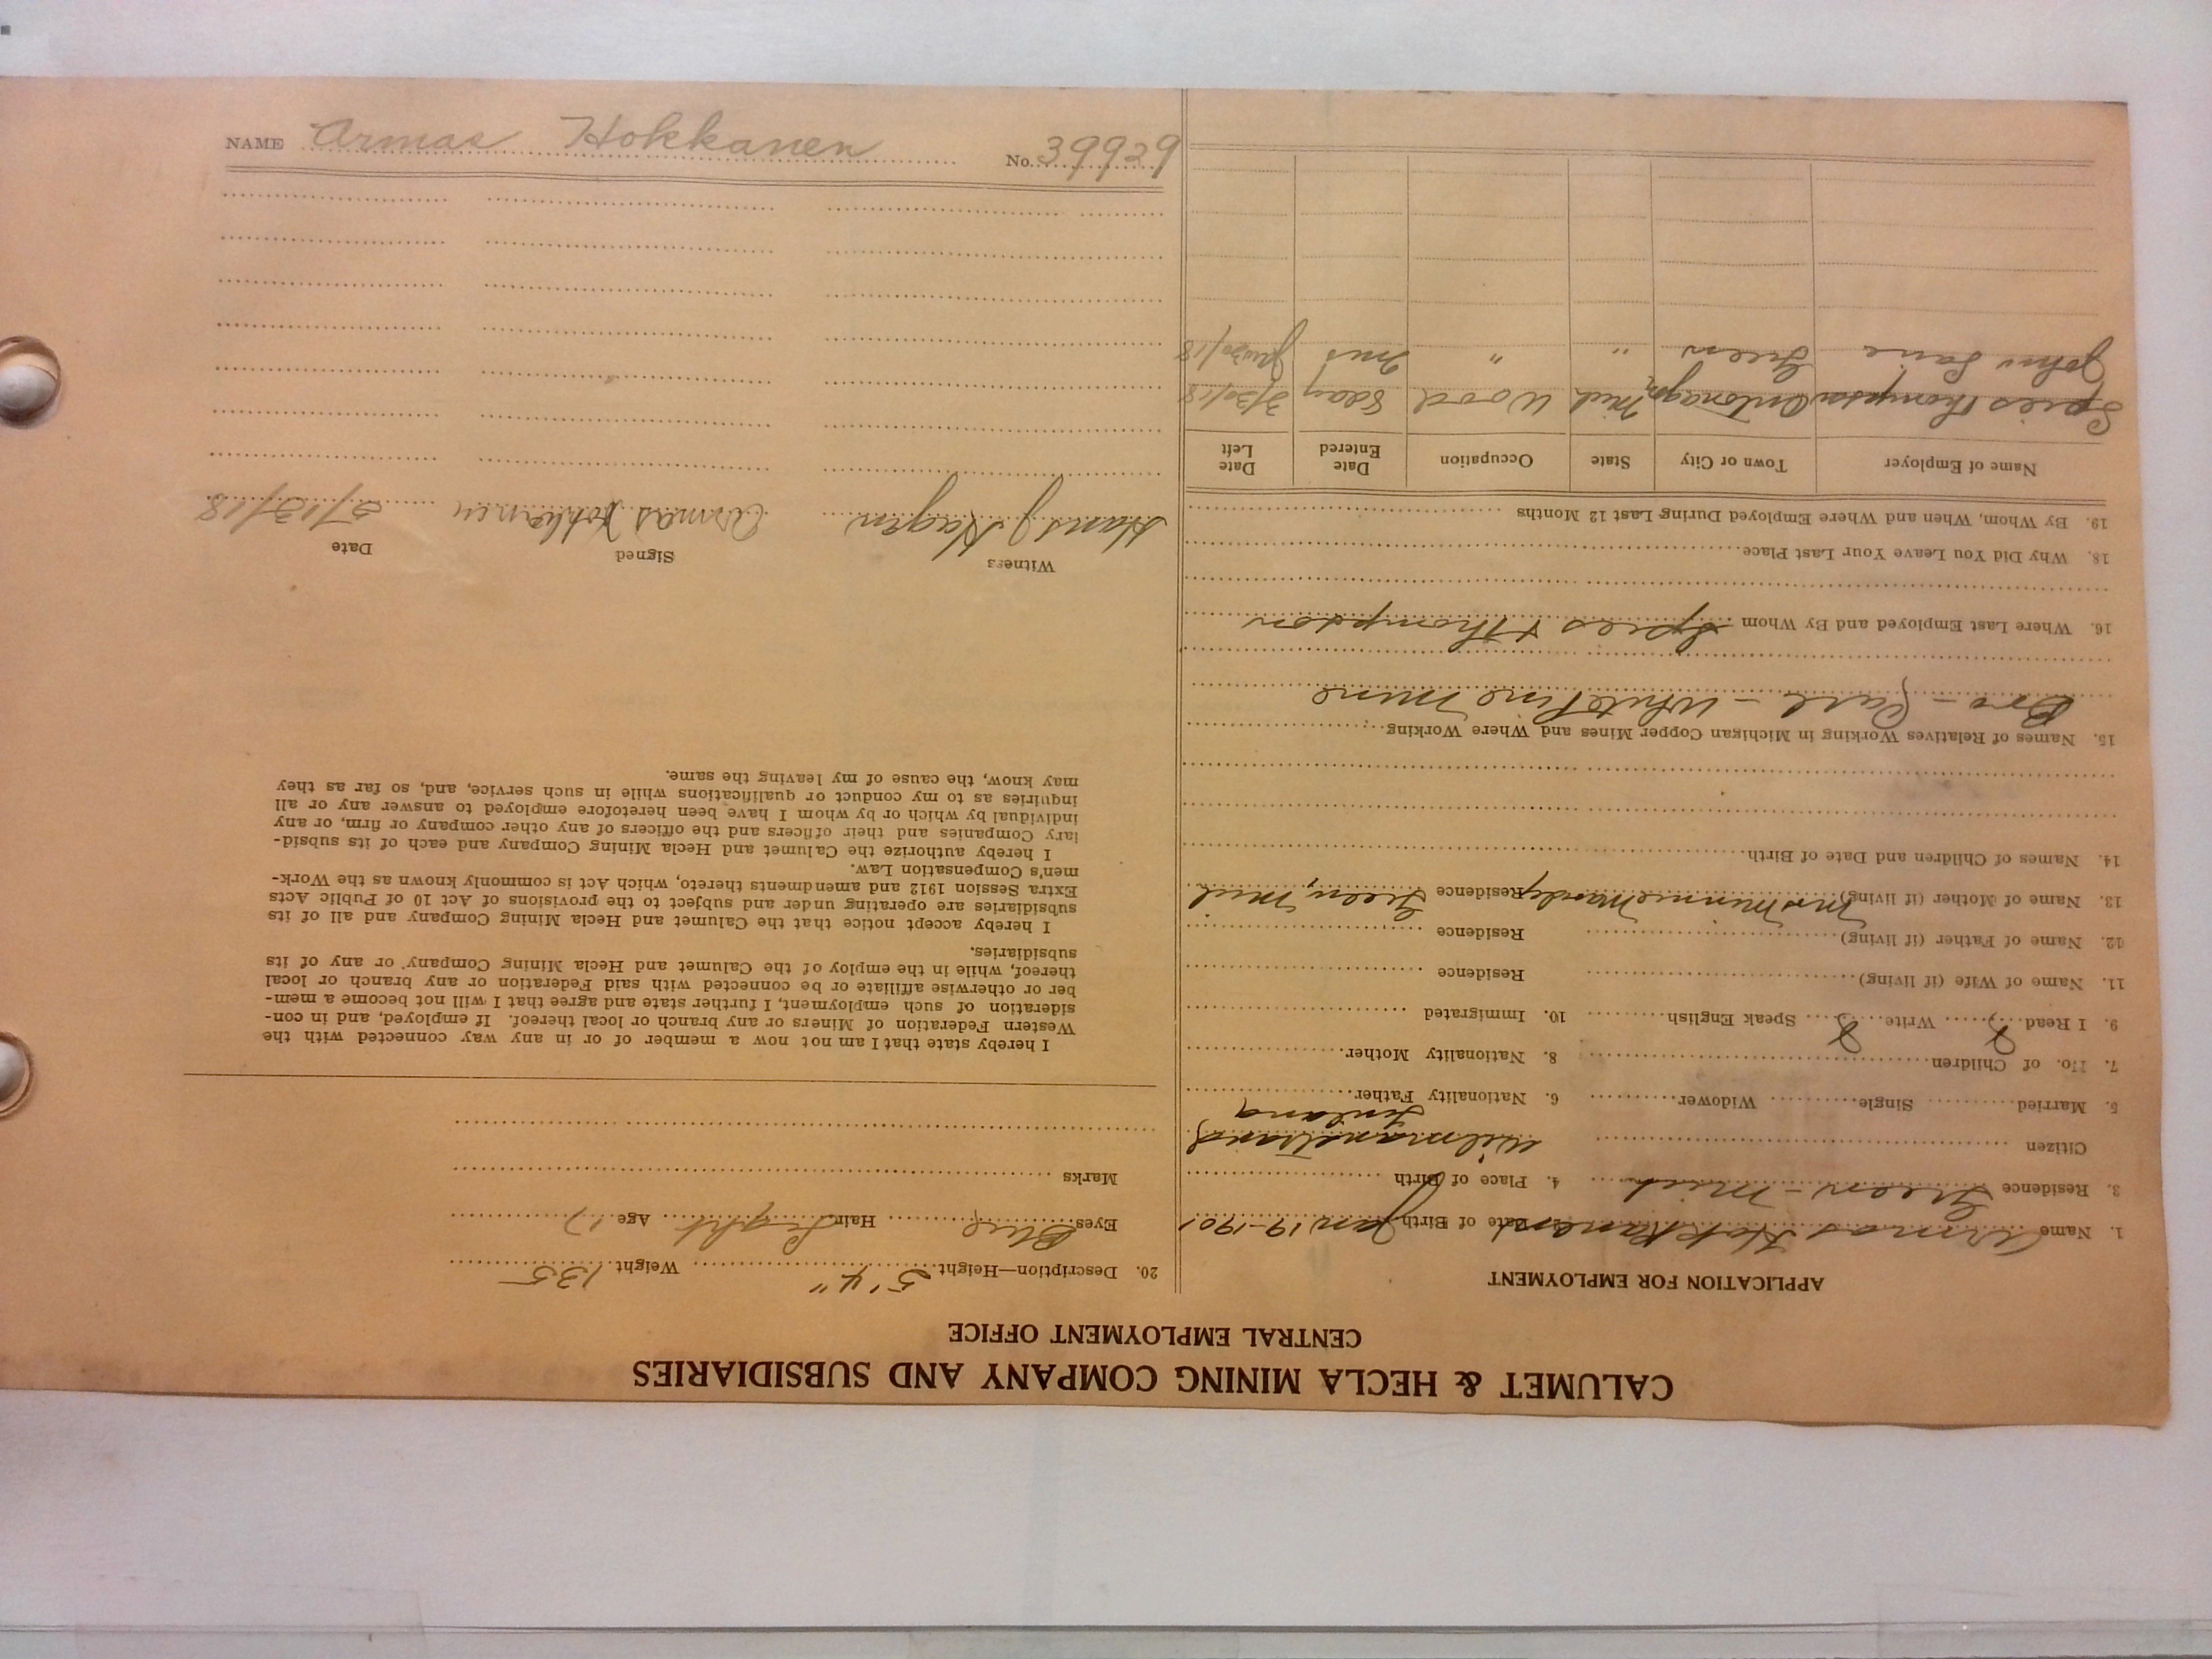 CALUMET & HECLA MINING COMPANY AND SUBSIDIARIES
CENTRAL EMPLOYMENT OFFICE
APPLICATION FOR EMPLOYMENT
1. Name Armas Hokkanen 2. Date of Birth Jan 19-1901
3. Residence Green - Mich 4. Place of Birth
Citizen Wilmanstrand
Finland
5. Married Single Widower 6. Nationality Father
7. No. of Children 8. Nationality Mother
9. I Read Write Speak English 10. Immigrated
11. Name of Wife (if living) Residence
12. Name of Father (if living) Residence
13. Name of Mother (if living) Mrs Minnie Residence Green, Mich
14. Names of Children and Date of Birth
15. Names of Relatives Working in Michigan Copper Mines and Where Working
Bro - Carl - White Pine Mine
16. Where Last Employed and By Whom Spies & Thompson
18. Why Did You Leave Your Last Place
19. By Whom, When and Where Employed During Last 12 Months
Name of Employer Town or City State Occupation Date Entered Date Left
Spies Thompson Ontonagon Mich Wood 8 day 3/30/18
John Green " " Jan 30/18
20. Description—Height 5' 4" Weight 135
Eyes Blue Hair Light Age 17
Marks
I hereby state that I am not now a member of or in any way connected with the
Western Federation of Miners or any branch or local thereof. If employed, and in con-
sideration of such employment, I further state and agree that I will not become a mem-
ber or otherwise affiliate or be connected with said Federation or any branch or local
thereof, while in the employ of the Calumet and Hecla Mining Company or any of its
subsidiaries.
I hereby accept notice that the Calumet and Hecla Mining Company and all of its
subsidiaries are operating under and subject to the provisions of Act 10 of Public Acts
Extra Session 1912 and amendments thereto, which Act is commonly known as the Work-
men's Compensation Law.
I hereby authorize the Calumet and Hecla Mining Company and each of its subsid-
iary Companies and their officers and the officers of any other company or firm, or any
individual by which or by whom I have been heretofore employed to answer any or all
inquiries as to my conduct or qualifications while in such service, and, so far as they
may know, the cause of my leaving the same.
Witness Signed Date
Hans J Hagen Armas Hokkanen /13/18
NAME Armas Hokkanen No. 39929